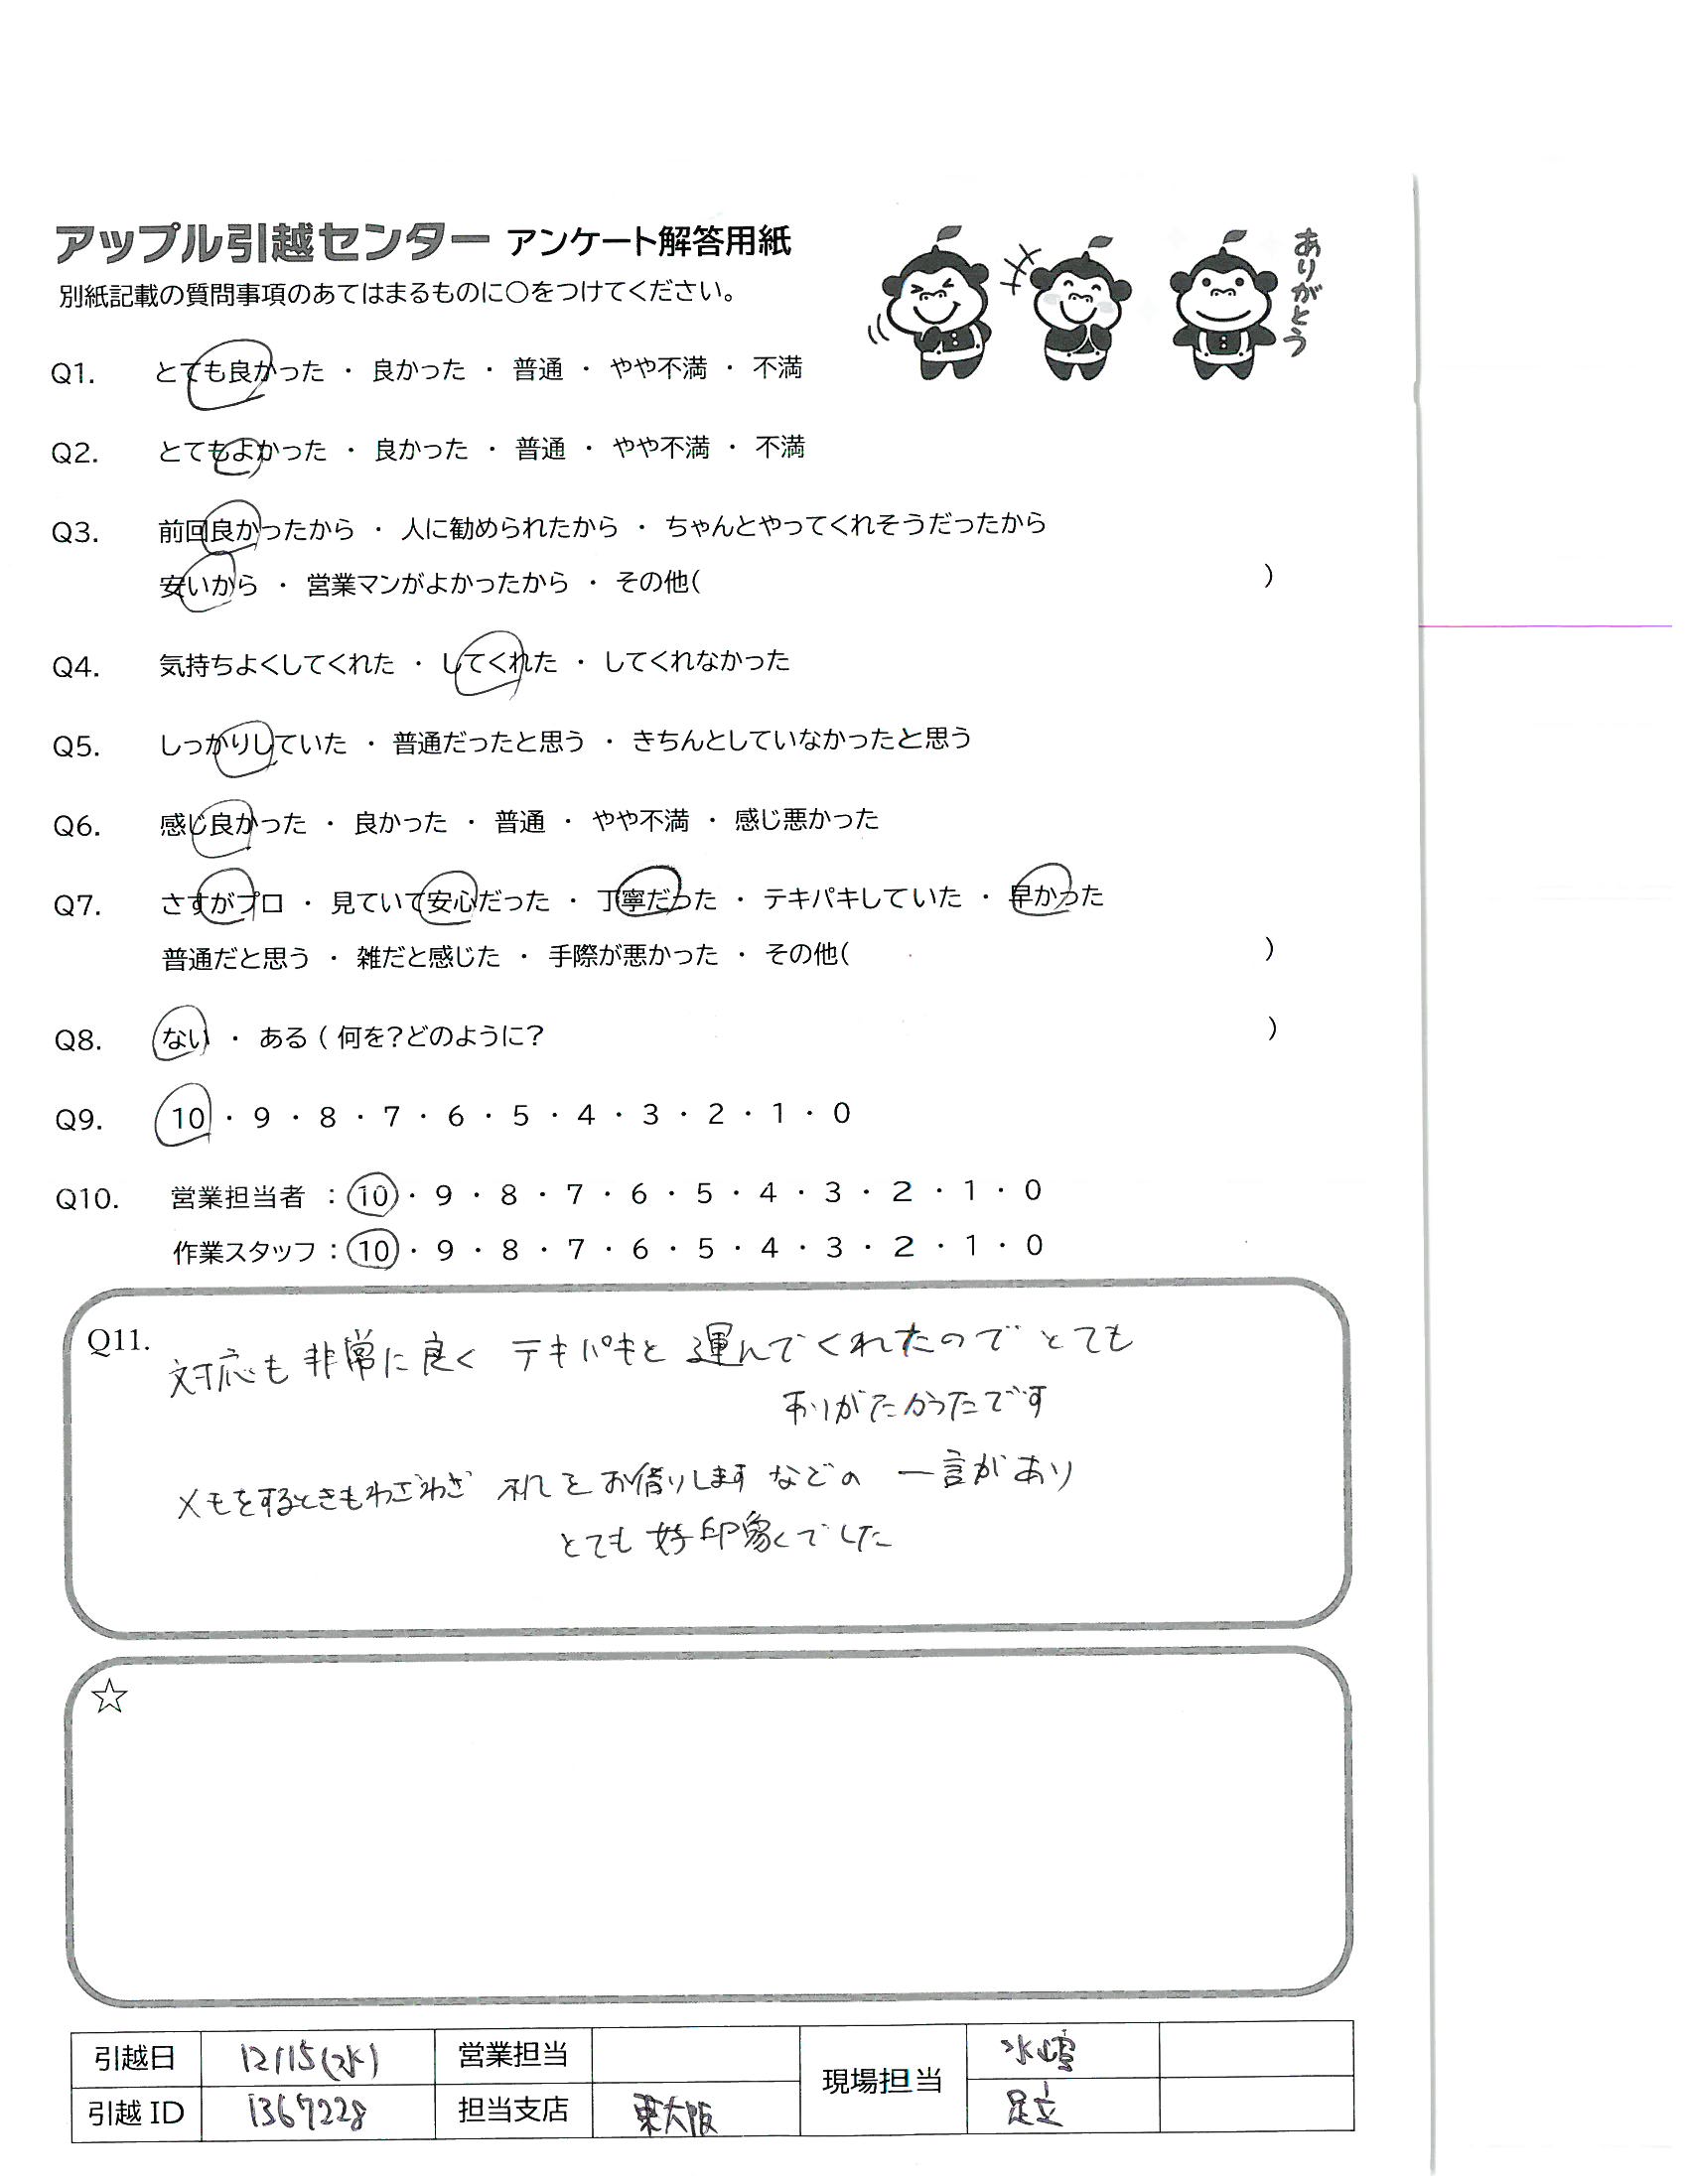 アップル引越センター アンケート解答用紙
別紙記載の質問事項のあてはまるものに○をつけてください。
ありがとう
Q1. とても良かった ・ 良かった ・ 普通 ・ やや不満 ・ 不満
Q2. とてもよかった ・ 良かった ・ 普通 ・ やや不満 ・ 不満
Q3. 前回良かったから ・ 人に勧められたから ・ ちゃんとやってくれそうだったから
安いから ・ 営業マンがよかったから ・ その他( )
Q4. 気持ちよくしてくれた ・ してくれた ・ してくれなかった
Q5. しっかりしていた ・ 普通だったと思う ・ きちんとしていなかったと思う
Q6. 感じ良かった ・ 良かった ・ 普通 ・ やや不満 ・ 感じ悪かった
Q7. さすがプロ ・ 見ていて安心だった ・ 丁寧だった ・ テキパキしていた ・ 早かった
普通だと思う ・ 雑だと感じた ・ 手際が悪かった ・ その他( )
Q8. ない ・ ある ( 何を?どのように? )
Q9. 10 ・ 9 ・ 8 ・ 7 ・ 6 ・ 5 ・ 4 ・ 3 ・ 2 ・ 1 ・ 0
Q10. 営業担当者 : 10 ・ 9 ・ 8 ・ 7 ・ 6 ・ 5 ・ 4 ・ 3 ・ 2 ・ 1 ・ 0
作業スタッフ : 10 ・ 9 ・ 8 ・ 7 ・ 6 ・ 5 ・ 4 ・ 3 ・ 2 ・ 1 ・ 0
Q11. 対応も非常に良く テキパキと 運んでくれたので とても
ありがたかったです
メモをするときもわざわざ 机をお借りします などの 一言があり
とても好印象でした
☆
引越日 12/15(水) 営業担当 現場担当
引越ID 1367228 担当支店 東大阪 足立